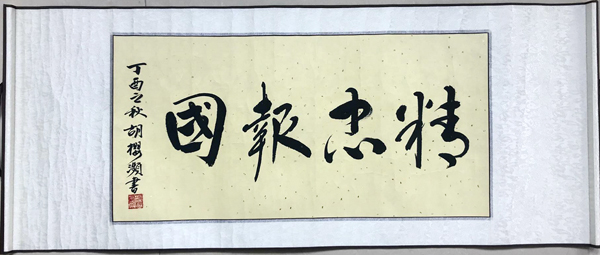 精忠報國
丁酉之秋 胡 書